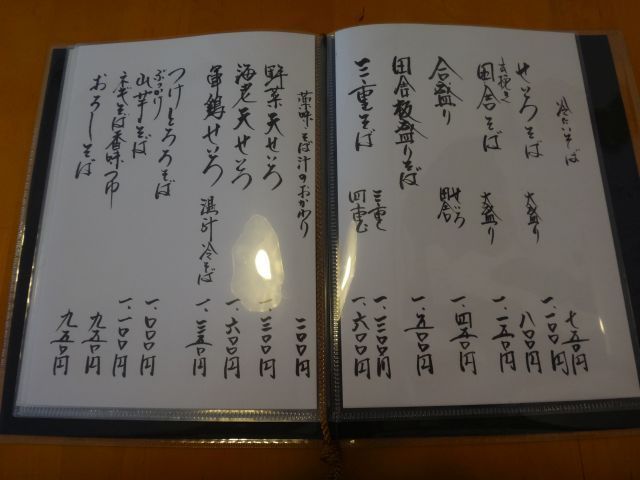 冷たいそば
せいろそば 七五〇円
大盛り 一、一〇〇円
田舎そば 八〇〇円
大盛り 一、一五〇円
合盛り せいろ 田舎 一、四五〇円
田舎板盛りそば 一、五〇〇円
三重そば 三重 一、三〇〇円
四重 一、六〇〇円
薬味・そば汁のおかわり 二〇〇円
野菜天せいろ 一、三〇〇円
海老天せいろ 一、六〇〇円
軍鶏せいろ 温汁冷そば 一、三五〇円
つけとろろそば 一、〇〇〇円
ぶっかけ
山芋そば 一、一〇〇円
ネギそば香味つゆ 九五〇円
おろしそば 九五〇円